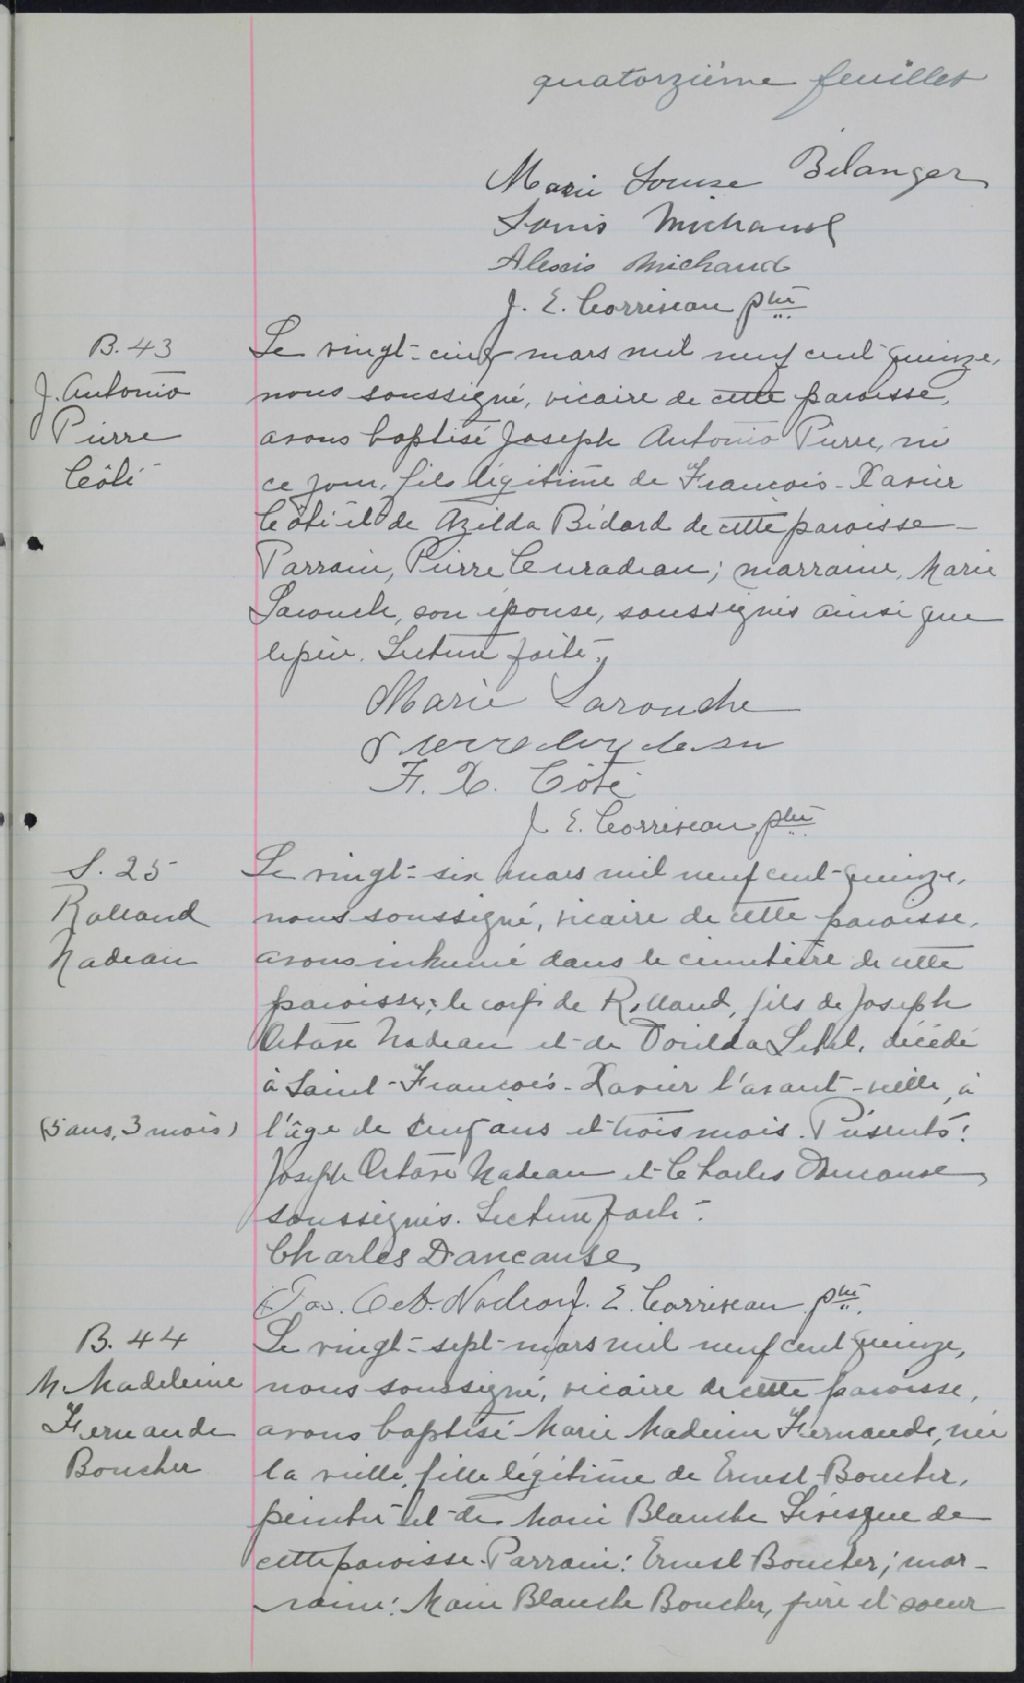 quatorzième feuillet
Marie Louise Bélanger
Louis Michaud
Alexis Michaud
J. E. Corriveau ptre
B. 43
J. Antonio
Pierre
Côté
Le vingt-cinq mars mil neuf cent quinze,
nous soussigné, vicaire de cette paroisse,
avons baptisé Joseph Antonio Pierre, né
ce jour, fils légitime de François-Xavier
Côté et de Azilda Bédard de cette paroisse-
Parrain, Pierre Curadeau; marraine, Marie
Larouche, son épouse, soussignés ainsi que
le père. Lecture faite.
Marie Larouche
Pierre
F. X. Côté
J. E. Corriveau, ptre
S. 25
Rolland
Nadeau
(5 ans, 3 mois)
Le vingt-six mars mil neuf cent-quinze,
nous soussigné, vicaire de cette paroisse,
avons inhumé dans le cimetière de cette
paroisse, le corps de Rolland, fils de Joseph
Octave Nadeau et de Dorilda Lebel, décédé
à Saint-François-Xavier l'avant-veille, à
l'âge de cinq ans et trois mois. Présents:
Joseph Octave Nadeau et Charles Dancause,
soussignés. Lecture faite.
Charles Dancause
Jos. Oct. Nadeau J. E. Corriveau ptre.
B. 44
M. Madeleine
Fernande
Boucher
Le vingt-sept mars mil neuf cent quinze,
nous soussigné, vicaire de cette paroisse,
avons baptisé Marie Madeleine Fernande, née
la veille, fille légitime de Ernest Boucher,
peintre et de Marie Blanche Lévesque de
cette paroisse. Parrain: Ernest Boucher; mar-
raine: Marie Blanche Boucher, frère et soeur